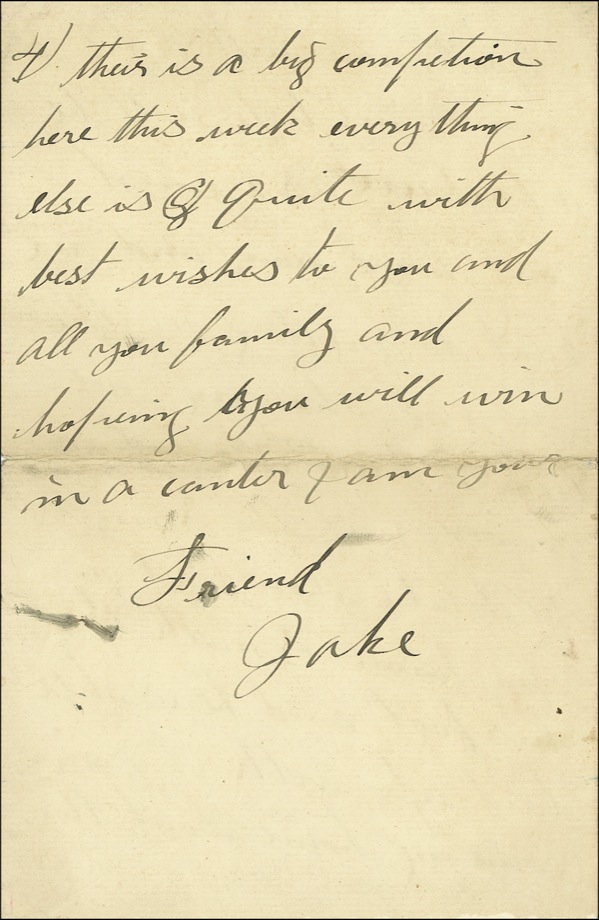 4) theis is a big competion
here this week every thing
else is Quite with
best wishes to you and
all you family and
hopeing you will win
in a canter I am your
Friend
Jake